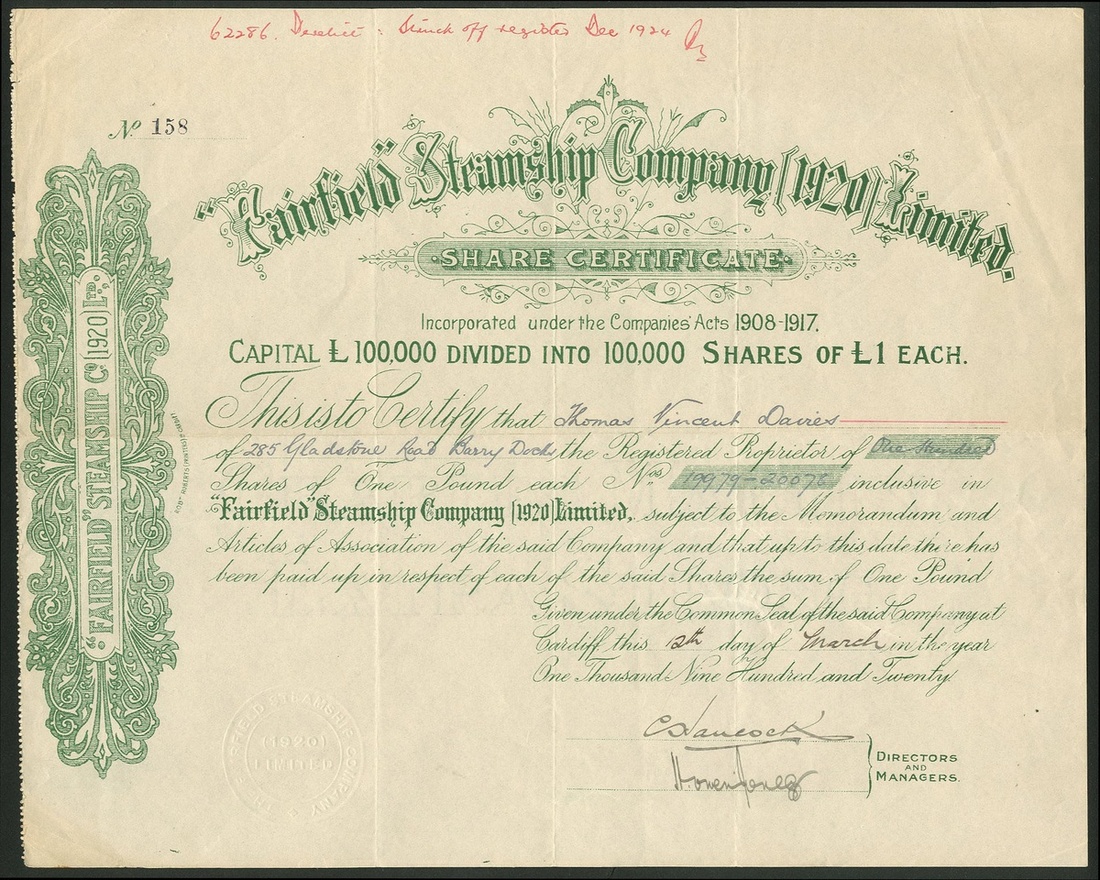 62286. Derelict : Struck off register Dec 1924
No 158
"Fairfield" Steamship Company (1920) Limited.
SHARE CERTIFICATE
Incorporated under the Companies' Acts 1908-1917.
CAPITAL £100,000 DIVIDED INTO 100,000 SHARES OF £1 EACH.
This is to Certify that Thomas Vincent Davies
of 285 Gladstone Road Barry Docks the Registered Proprietor of One Hundred
Shares of One Pound each Nos 19979-20078 inclusive in
"Fairfield" Steamship Company (1920) Limited, subject to the Memorandum and
Articles of Association of the said Company and that up to this date there has
been paid up in respect of each of the said Shares the sum of One Pound
Given under the Common Seal of the said Company at
Cardiff this 12th day of March in the year
One Thousand Nine Hundred and Twenty
C Hancock
DIRECTORS
AND
MANAGERS.
"FAIRFIELD" STEAMSHIP CO (1920) LTD.
FAIRFIELD STEAMSHIP COMPANY
(1920)
LIMITED